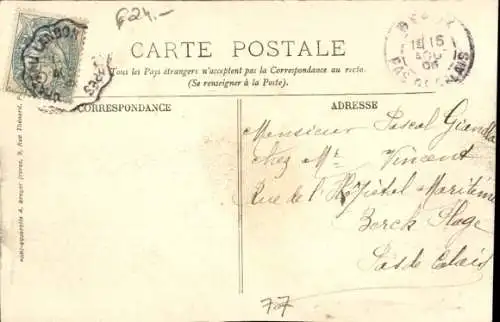 F24.—
CARTE POSTALE
Tous les Pays étrangers n'acceptent pas la Correspondance au recto.
(Se renseigner à la Poste).
CORRESPONDANCE
ADRESSE
Monsieur Pascal
chez Mr Vincent
Rue de l'Hôpital Maritime
Berck Plage
Pas de Calais
77
15
PAS DE CALAIS